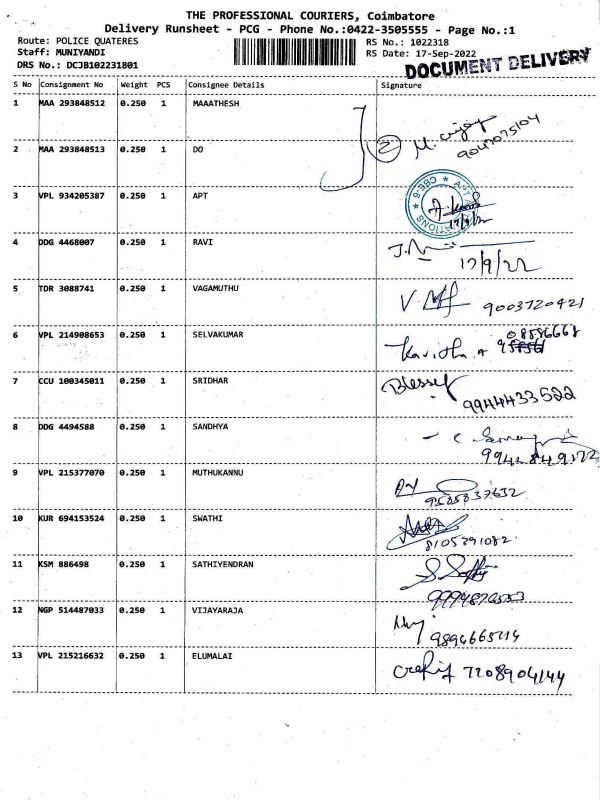 THE PROFESSIONAL COURIERS, Coimbatore
Delivery Runsheet - PCG - Phone No.:0422-3505555 - Page No.:1
Route: POLICE QUATERES
RS No.: 1022318
Staff: MUNIYANDI
RS Date: 17-Sep-2022
DRS No.: DCJB102231801
DOCUMENT DELIVERY
S No Consignment No Weight PCS Consignee Details Signature
1 MAA 293848512 0.250 1 MAAATHESH
2 MAA 293848513 0.250 1 DO
3 VPL 934205387 0.250 1 APT
4 DDG 4468007 0.250 1 RAVI 17/9/22
5 TDR 3088741 0.250 1 VAGAMUTHU 9003720421
6 VPL 214908653 0.250 1 SELVAKUMAR Kavitha
7 CCU 100345011 0.250 1 SRIDHAR 9944433522
8 DDG 4494588 0.250 1 SANDHYA
9 VPL 215377070 0.250 1 MUTHUKANNU
10 KUR 694153524 0.250 1 SWATHI 8105391082
11 KSM 886498 0.250 1 SATHIYENDRAN
12 NGP 514487033 0.250 1 VIJAYARAJA
13 VPL 215216632 0.250 1 ELUMALAI 7208904144